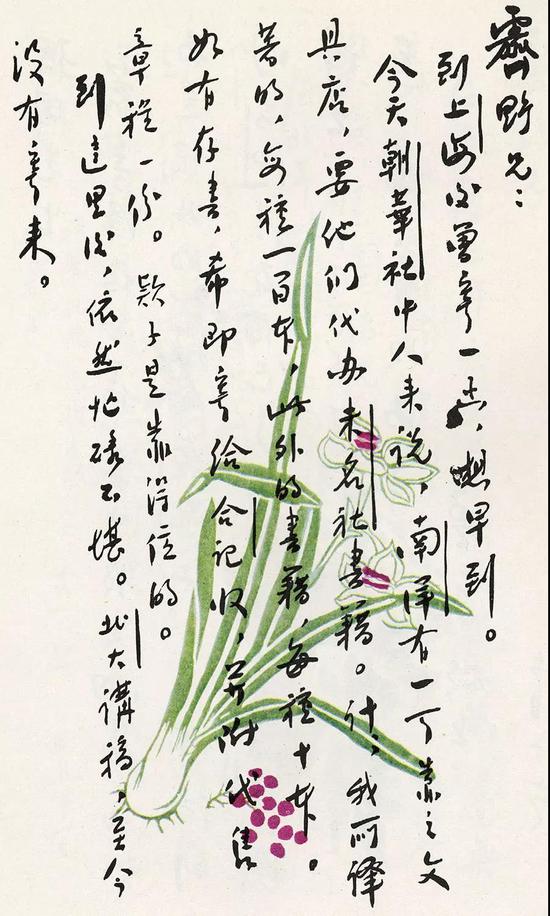 霽野兄：
到上海后曾寄一函，想早到。
今天朝華社中人来说，南洋有一丁靠之文
具店，要他们代办未名社書籍。计，我所譯
著的，每种一百本，此外的書籍，每種十本。
如有存書，希即寄给合记收，并附代售
章程一份。款子是靠得住的。
到这里后，依然忙碌不堪。北大講稿，至今
没有寄来。